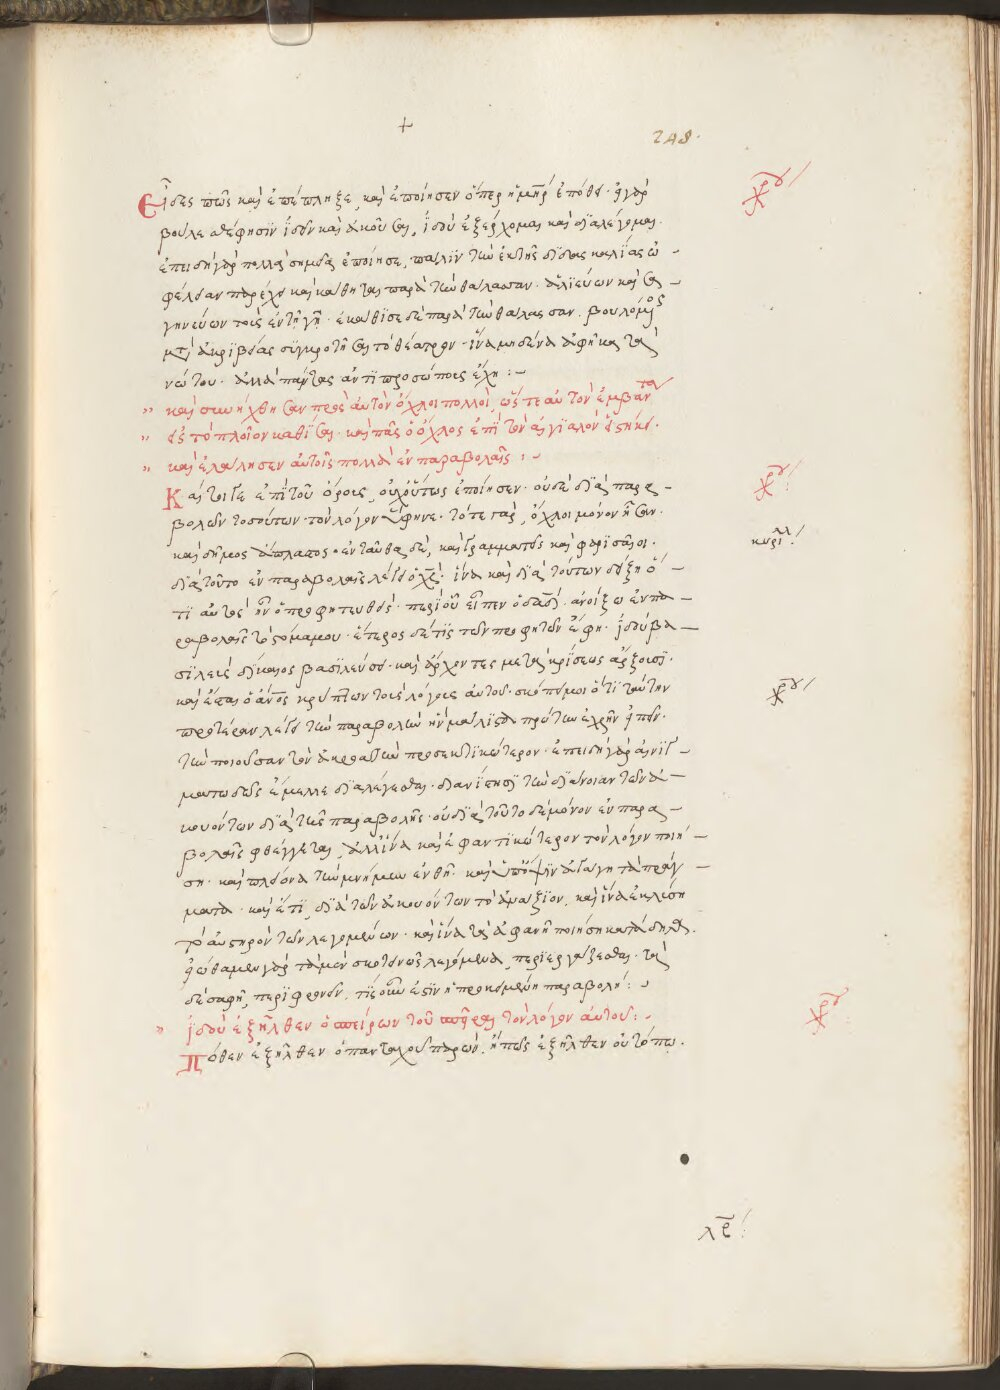 +
248.
χρυ
Εἶδες πῶς καὶ ἐπέπληξε, καὶ ἐποίησεν ὅπερ ἡ μῆηρ ἐπόθει· γὰρ
ἰδεῖν καὶ ἀκοῦσαι, ἰδοὺ ἐξέρχομαι καὶ διαλέγομαι.
ἐπειδὴ γὰρ πολλὰ σημεῖα ἐποίησε, πάλιν τὴν ἐκ τῆς διδασκαλίας ὠ
φέλειαν παρέχει καὶ κάθηται παρὰ τὴν θάλασσαν· ἁλιεύων καὶ σα
γηνεύων τοὺς ἐν τῇ γῇ· ἐκάθισε δὲ παρὰ τὴν θάλασσαν. βουλόμενος
μετὰ ἀκριβείας συγκροτῆσαι τὸ θέατρον· ἵνα μηδένα ἀφῇ κατὰ
νώτου· ἀλλὰ πάντας ἀντιπροσώπους ἔχῃ :–
" καὶ συνήχθησαν πρὸς αὐτὸν ὄχλοι πολλοί, ὥστε αὐτὸν ἐμβάντα
" εἰς τὸ πλοῖον καθῖσαι· καὶ πᾶς ὁ ὄχλος ἐπὶ τὸν αἰγιαλὸν εἱστήκει·
" καὶ ἐλάλησεν αὐτοῖς πολλὰ ἐν παραβολαῖς :–
χρυ
Καίτοιγε ἐπὶ τοῦ ὄρους, οὐχ οὕτως ἐποίησεν· οὐδὲ διὰ παρα
βολῶν τοσούτων τὸν λόγον ὕφηνε· τότε γὰρ, ὄχλοι μόνον ἦσαν·
κυριλλ
καὶ δῆμος ἄπλαστος· ἐνταῦθα δὲ, καὶ γραμματεῖς καὶ φαρισαῖοι.
διὰ τοῦτο ἐν παραβολαῖς λέγει ὁ χς· ἵνα καὶ διὰ τούτων δείξῃ ὅ
τι αὐτὸς ἦν ὁ προφητευθείς· περὶ οὗ εἶπεν ὁ δαδ· ἀνοίξω ἐν πα
ραβολαῖς τὸ στόμα μου· ἕτερος δέ τις τῶν προφητῶν ἔφη· ἰδοὺ βα
σιλεὺς δίκαιος βασιλεύσει· καὶ ἄρχοντες μετὰ κρίσεως ἄρξουσι·
χρυ
καὶ ἔσται ὁ ἄνος κρύπτων τοὺς λόγους αὐτοῦ· σκόπει μοι ὅτι ταύτην
προτέραν λέγει τὴν παραβολὴν ἣν μάλιστα πρώτην ἐχρῆν εἰπεῖν·
τὴν ποιοῦσαν τὸν ἀκροατὴν προσεκτικώτερον· ἐπειδὴ γὰρ αἰνιγ
ματωδῶς ἔμελλε διαλέγεσθαι· διανίστησι τὴν διάνοιαν τῶν ἀ
κουόντων διὰ τῆς παραβολῆς· οὐ διὰ τοῦτο δὲ μόνον ἐν παρα
βολαῖς φθέγγεται, ἀλλ' ἵνα καὶ ἐμφαντικώτερον τὸν λόγον ποιή
σῃ· καὶ πλείονα τὴν μνήμην ἐνθῇ· καὶ ὑπ' ὄψιν ἀγάγῃ τὰ πράγ
ματα· καὶ ἔτι, διὰ τῶν ἀκουόντων τὸ ἀνάξιον, καὶ ἵνα ἐκλύσῃ
τὸ αὐστηρὸν τῶν λεγομένων· καὶ ἵνα τὰ ἀφανῆ ποιήσῃ κατάδηλα.
εἰώθαμεν γὰρ τὰ μὲν σκοτεινῶς λεγόμενα, περιεργάζεσθαι· τὰ
δὲ σαφῆ, περιφρονεῖν. τίς οὖν ἐστὶν ἡ προκειμένη παραβολή :–
" ἰδοὺ ἐξῆλθεν ὁ σπείρων τοῦ σπεῖραι τὸν λόγον αὐτοῦ :–
χρυ
Πόθεν ἐξῆλθεν ὁ πανταχοῦ παρών, ἢ πῶς ἐξῆλθεν οὐ τόπῳ.